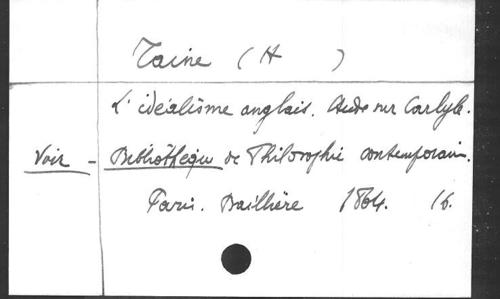 Taine (H )
L'idéalisme anglais. Etude sur Carlyle.
Voir - Bibliothèque de Philosophie contemporain.
Paris. Baillière 1864. 16.